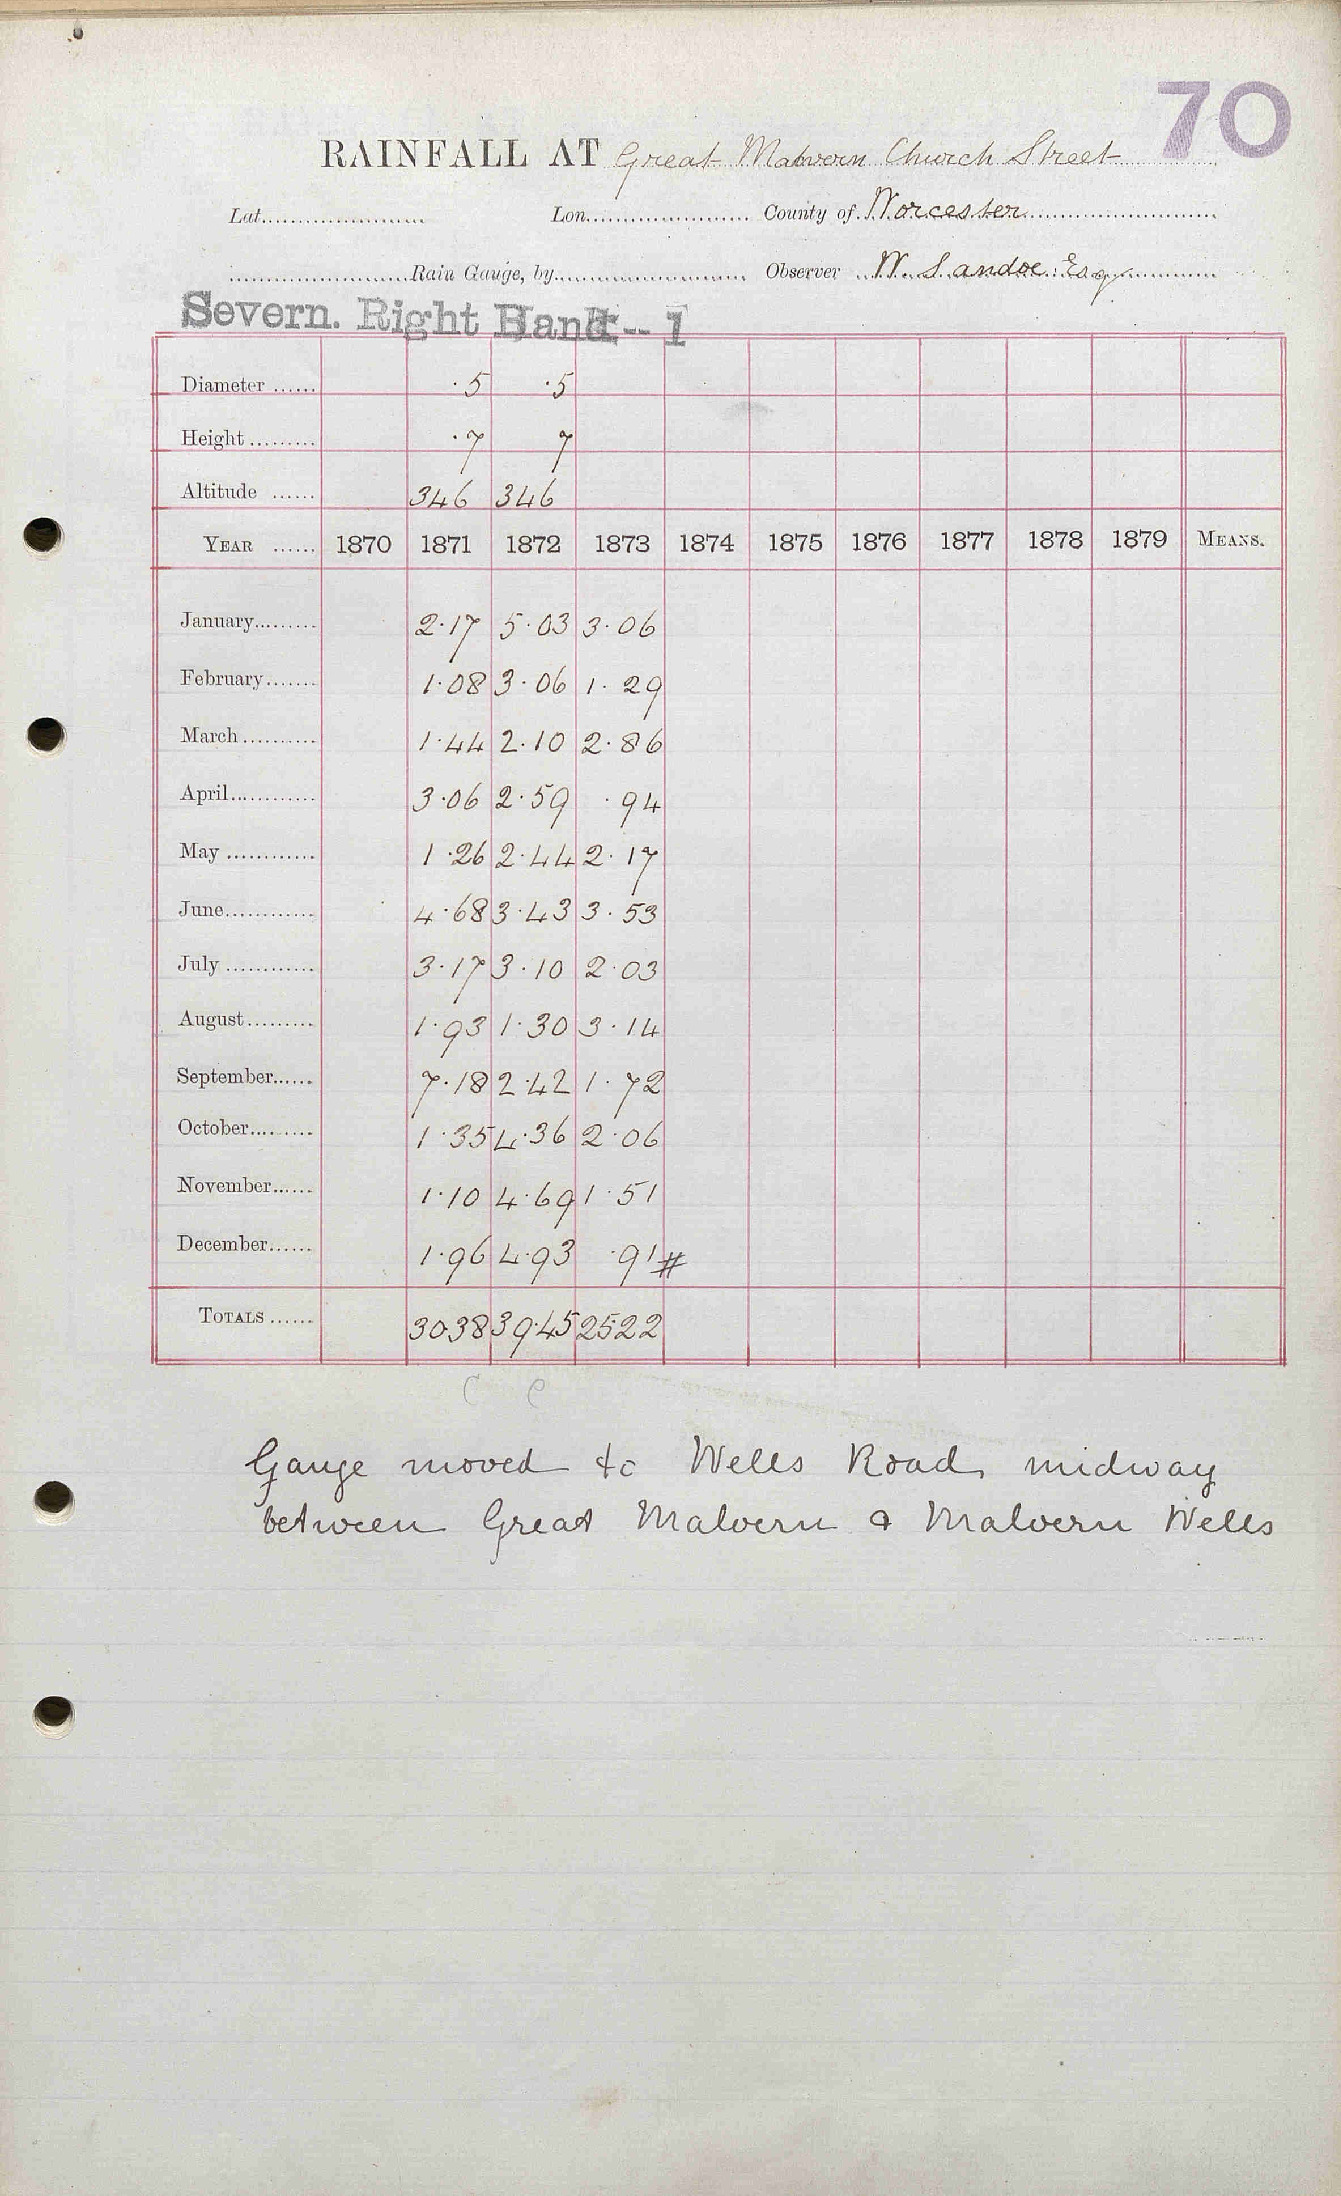 70
RAINFALL AT Great Malvern Church Street
Lat. Lon. County of Worcester
Rain Gauge, by Observer W. Sandoe Esq
Severn. Right Bank-- 1
Diameter ·5 ·5
Height ·7 7
Altitude 346 346
YEAR 1870 1871 1872 1873 1874 1875 1876 1877 1878 1879 MEANS.
January 2·17 5·03 3·06
February 1·08 3·06 1·29
March 1·44 2·10 2·86
April 3·06 2·59 ·94
May 1·26 2·44 2·17
June 4·68 3·43 3·53
July 3·17 3·10 2·03
August 1·93 1·30 3·14
September 7·18 2·42 1·72
October 1·35 4·36 2·06
November 1·10 4·69 1·51
December 1·96 4·93 ·91 #
TOTALS 30·38 39·45 25·22
C C
Gauge moved to Wells Road, midway
between Great Malvern & Malvern Wells